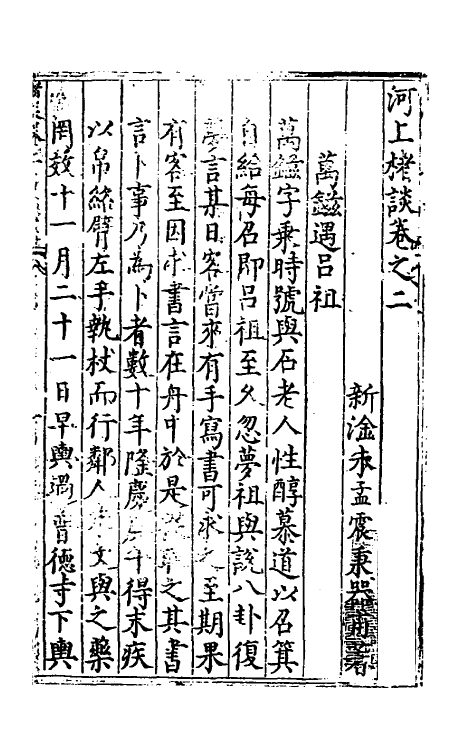 河上楮談卷之二
新淦朱孟震秉器
萬鎡遇呂祖
萬鎡字秉時號與石老人性醇慕道以召箕
自給每召即呂祖至久忽夢祖與談八卦復
言某日客當來有手寫書可求之至期果
有客至因求書言在舟中於是之其書
言卜事乃為卜者數十年隆慶年得末疾
以帛絡臂左手執杖而行鄰人文與之藥
罔效十一月二十一日早輿過普德寺下輿